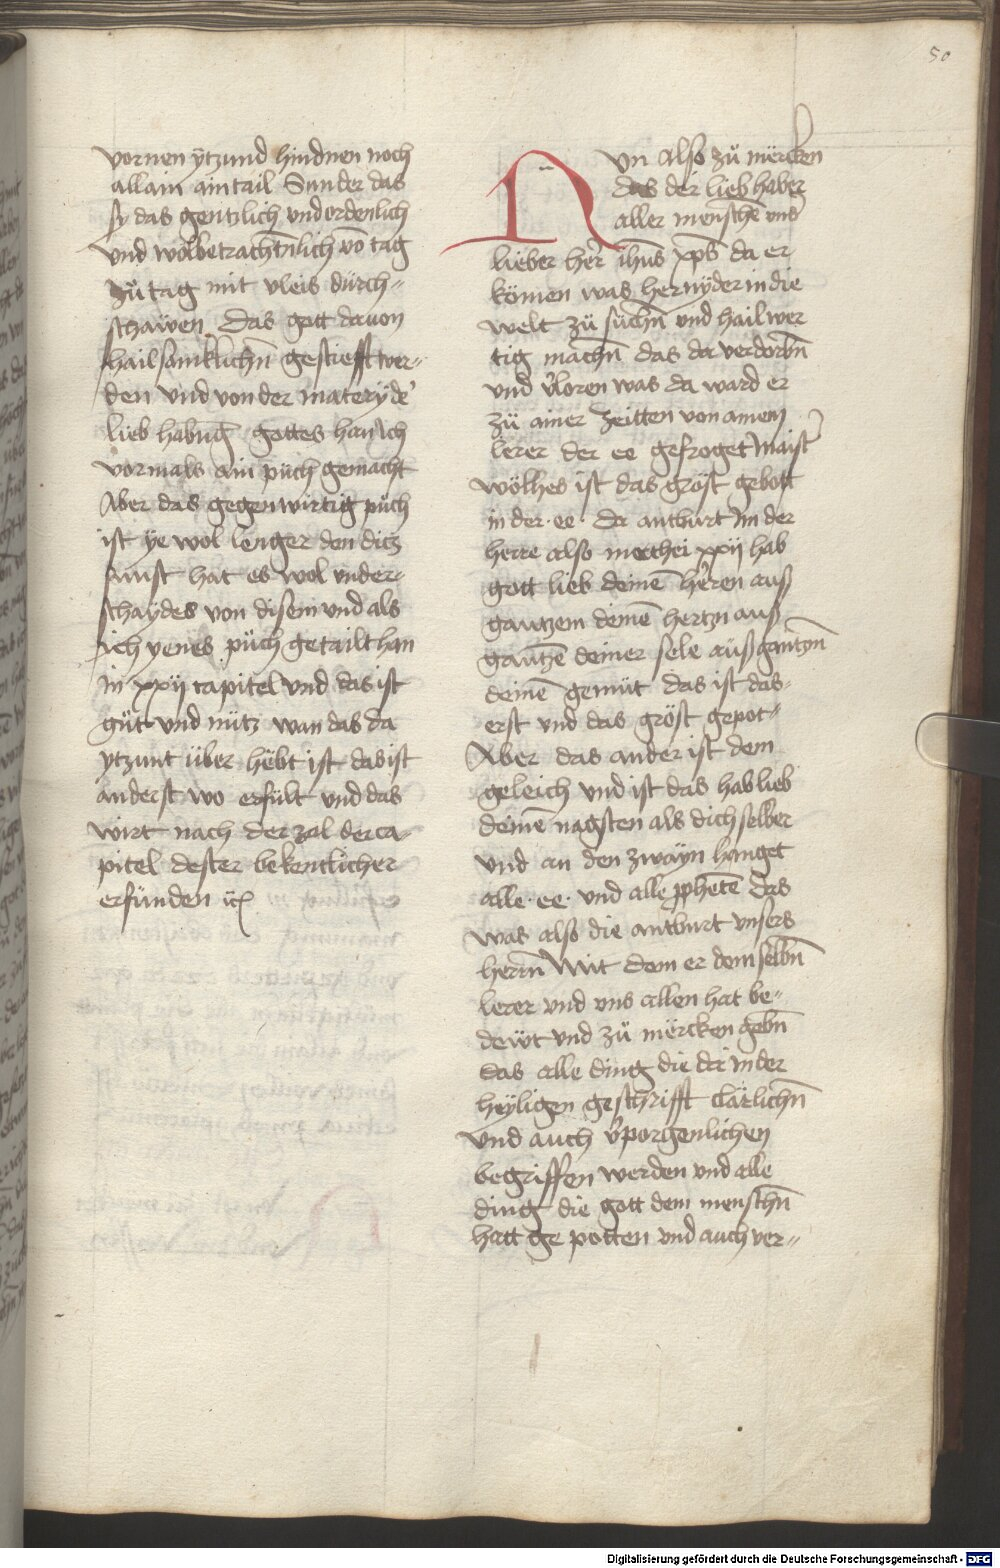 50
vornen ytzund hindnen noch
allain ain tail Sunder das
sy das gentzlich und ordenlich
und wolbetrachtñlich vō tag
zů tag mit vleis dürch-
schawen Das gott davon
hailsamklichñ gestiefft wer-
den Und von der matery de᷑
lieb habūg gottes han ich
vormals ain půch gemacht
Aber das gegenwirtig půch
ist ye wol lenger den ditz
sunst hat es wol under-
schaydes von disem und als
ich yenes půch getailt han
in xxij capitel Und das ist
gůt und nütz wan das da
ytzunt über hebt ist das ist
anderst wo erfült und das
wirt nach der zal der ca-
pitel dester bekentlicher
erfunden ꝛc
Nvn also zů mërcken
das der liebhaber
aller menschē und
lieber he᷑r ihūs xp̄s da er
kömen was hernyder in die
welt zů süchñ und hailwer
tig machñ das da verdorbñ
und v᷑loren was da ward er
zů ainer zeitten von ainem
lerer der ee gefroget Maist᷑
wölhes ist das gröst gebott
in der · ee · da antburt Im der
herre also mathei xxij hab
gott lieb deinē he᷑ren auß
gantzem deinē hertzñ auß
gantzē deiner sele auß gantzñ
deinē gemüt das ist das-
erst und das gröst gepot-
Aber das ander ist dem
geleich und ist das hab lieb
deinē nagsten als dich selber
und an den zwayn hanget
alle · ee · und alle pphetē das
was also die antburt unsers
herrñ Mit dem er dem selbñ
lerer und uns allen hat be-
dewt und zů mërcken gebñ
das alle ding die da in der
heyligen geschrifft clärlichñ
Und auch v᷑porgenlichen
begriffen werden und alle
ding die gott dem menschñ
hatt ge potten und auch ver-
Digitalisierung gefördert durch die Deutsche Forschungsgemeinschaft - DFG